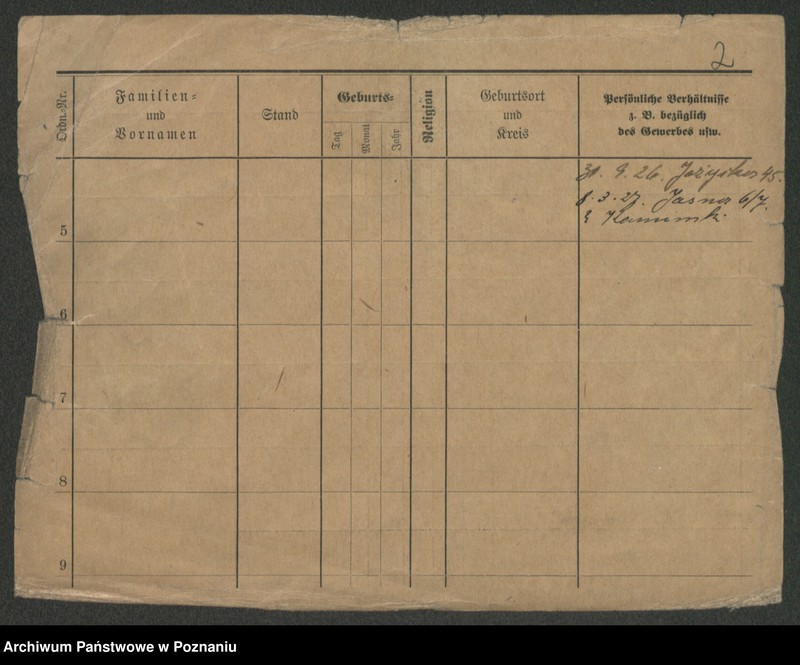 2
Ordn.-Nr.
Familien=
und
Vornamen
Stand
Geburts=
Tag
Monat
Jahr
Religion
Geburtsort
und
Kreis
Persönliche Verhältnisse
z. B. bezüglich
des Gewerbes usw.
26. 45.
8. 3. 27. Jasna 6/7.
5
6
7
8
9
Archiwum Państwowe w Poznaniu